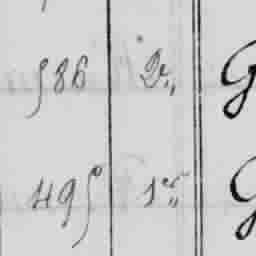 586 2e,, G
495 1er,, G